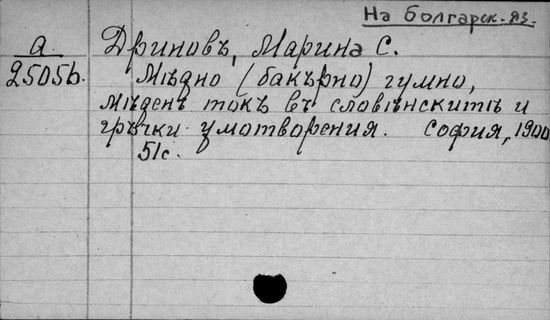 На болгарск. яз.
а
25056.
Дриновъ, Марина С.
Мѣдно (бакърно) гумно,
мѣденъ токъ въ словѣнскитѣ и
гръчки умотворения. София, 1900
51с.